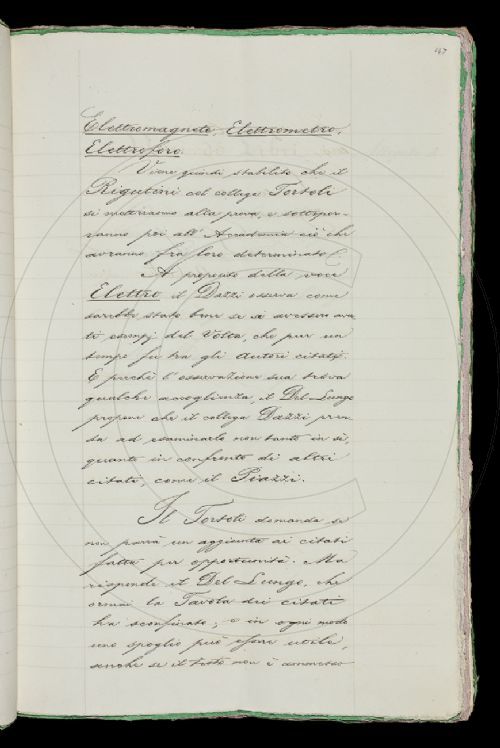 167
Elettromagnete, Elettrometro,
Elettroforo
Viene quindi stabilito che il
Rigutini col collega Tortoli
si metteranno alla prova, e sottopor-
ranno poi all'Accademia ciò che
avranno fra loro determinato.
A proposito della voce
Elettro il Dazzi osserva come
sarebbe stato bene se si avessero avu
ti esempj del Volta, che pur un
tempo fu tra gli Autori citati.
E perchè l'osservazione sua trova
qualche accoglienza, il Del-Lungo
propone che il collega Dazzi pren
da ad esaminarlo non tanto in sè,
quanto in confronto di altri
citati, come il Piazzi.
Il Tortoli domanda se
non parrà un'aggiunta ai citati
fatta per opportunità. Ma
risponde il Del-Lungo, che
ormai la Tavola dei citati
ha sconfinato; e in ogni modo
uno spoglio può essere utile,
anche se il testo non è ammesso